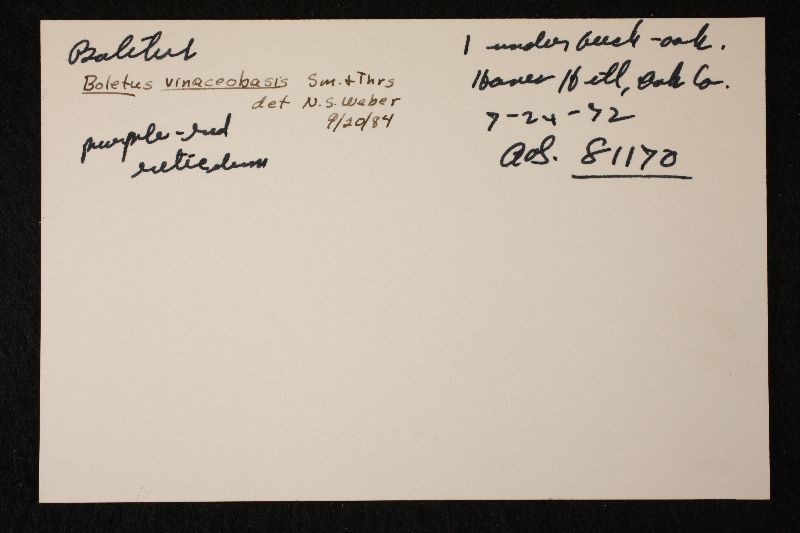 Boletus
Boletus vinaceobasis Sm. & Thrs
det N.S. Weber
9/20/84
purple-red
reticulum
1 under beech-oak.
Haven Hill, Oak Co.
7-24-72
AHS. 81170